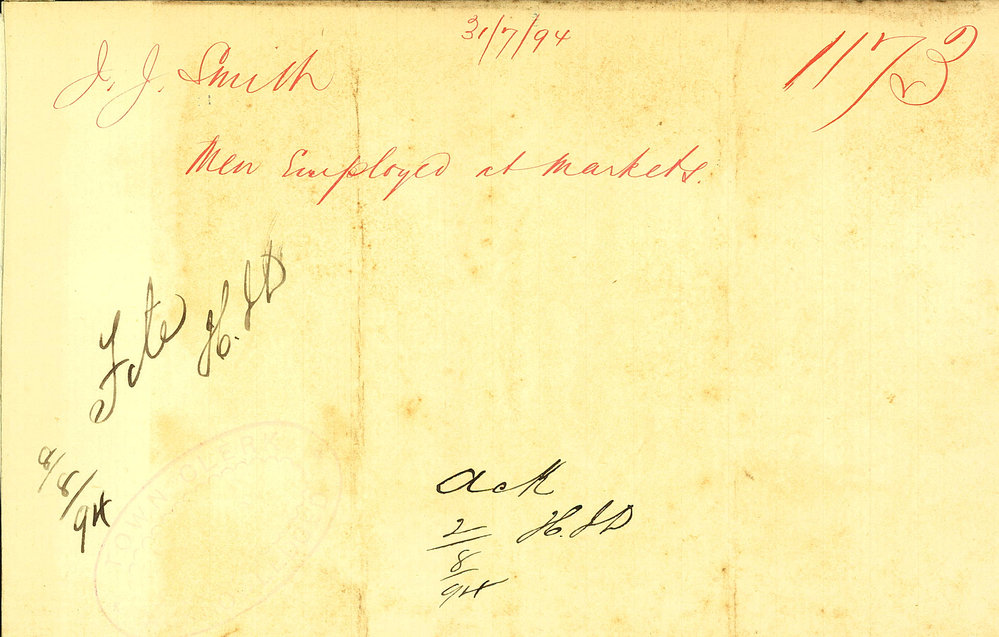 31/7/94
J. J. Smith
1173
Men Employed at Markets.
H.JD
8/8/94
TOWN CLERK
Ack
2/8/94
H.JD